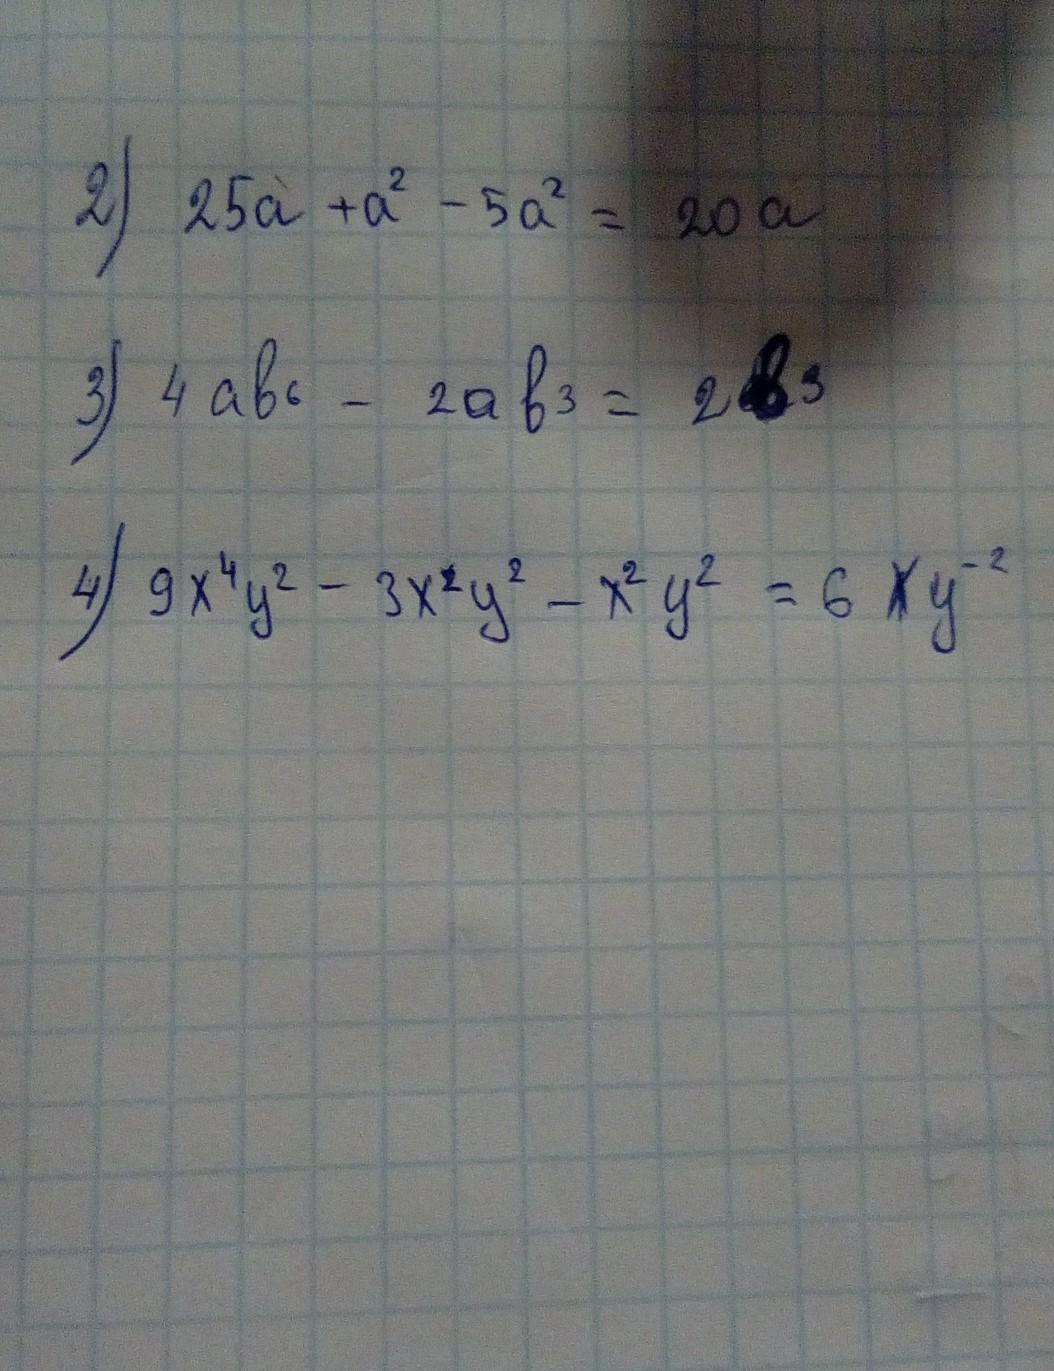 2) 25a + a² - 5a² = 20a
3) 4ab6 - 2ab3 = 2b3
4) 9x⁴y² - 3x²y² - x²y² = 6xy⁻²